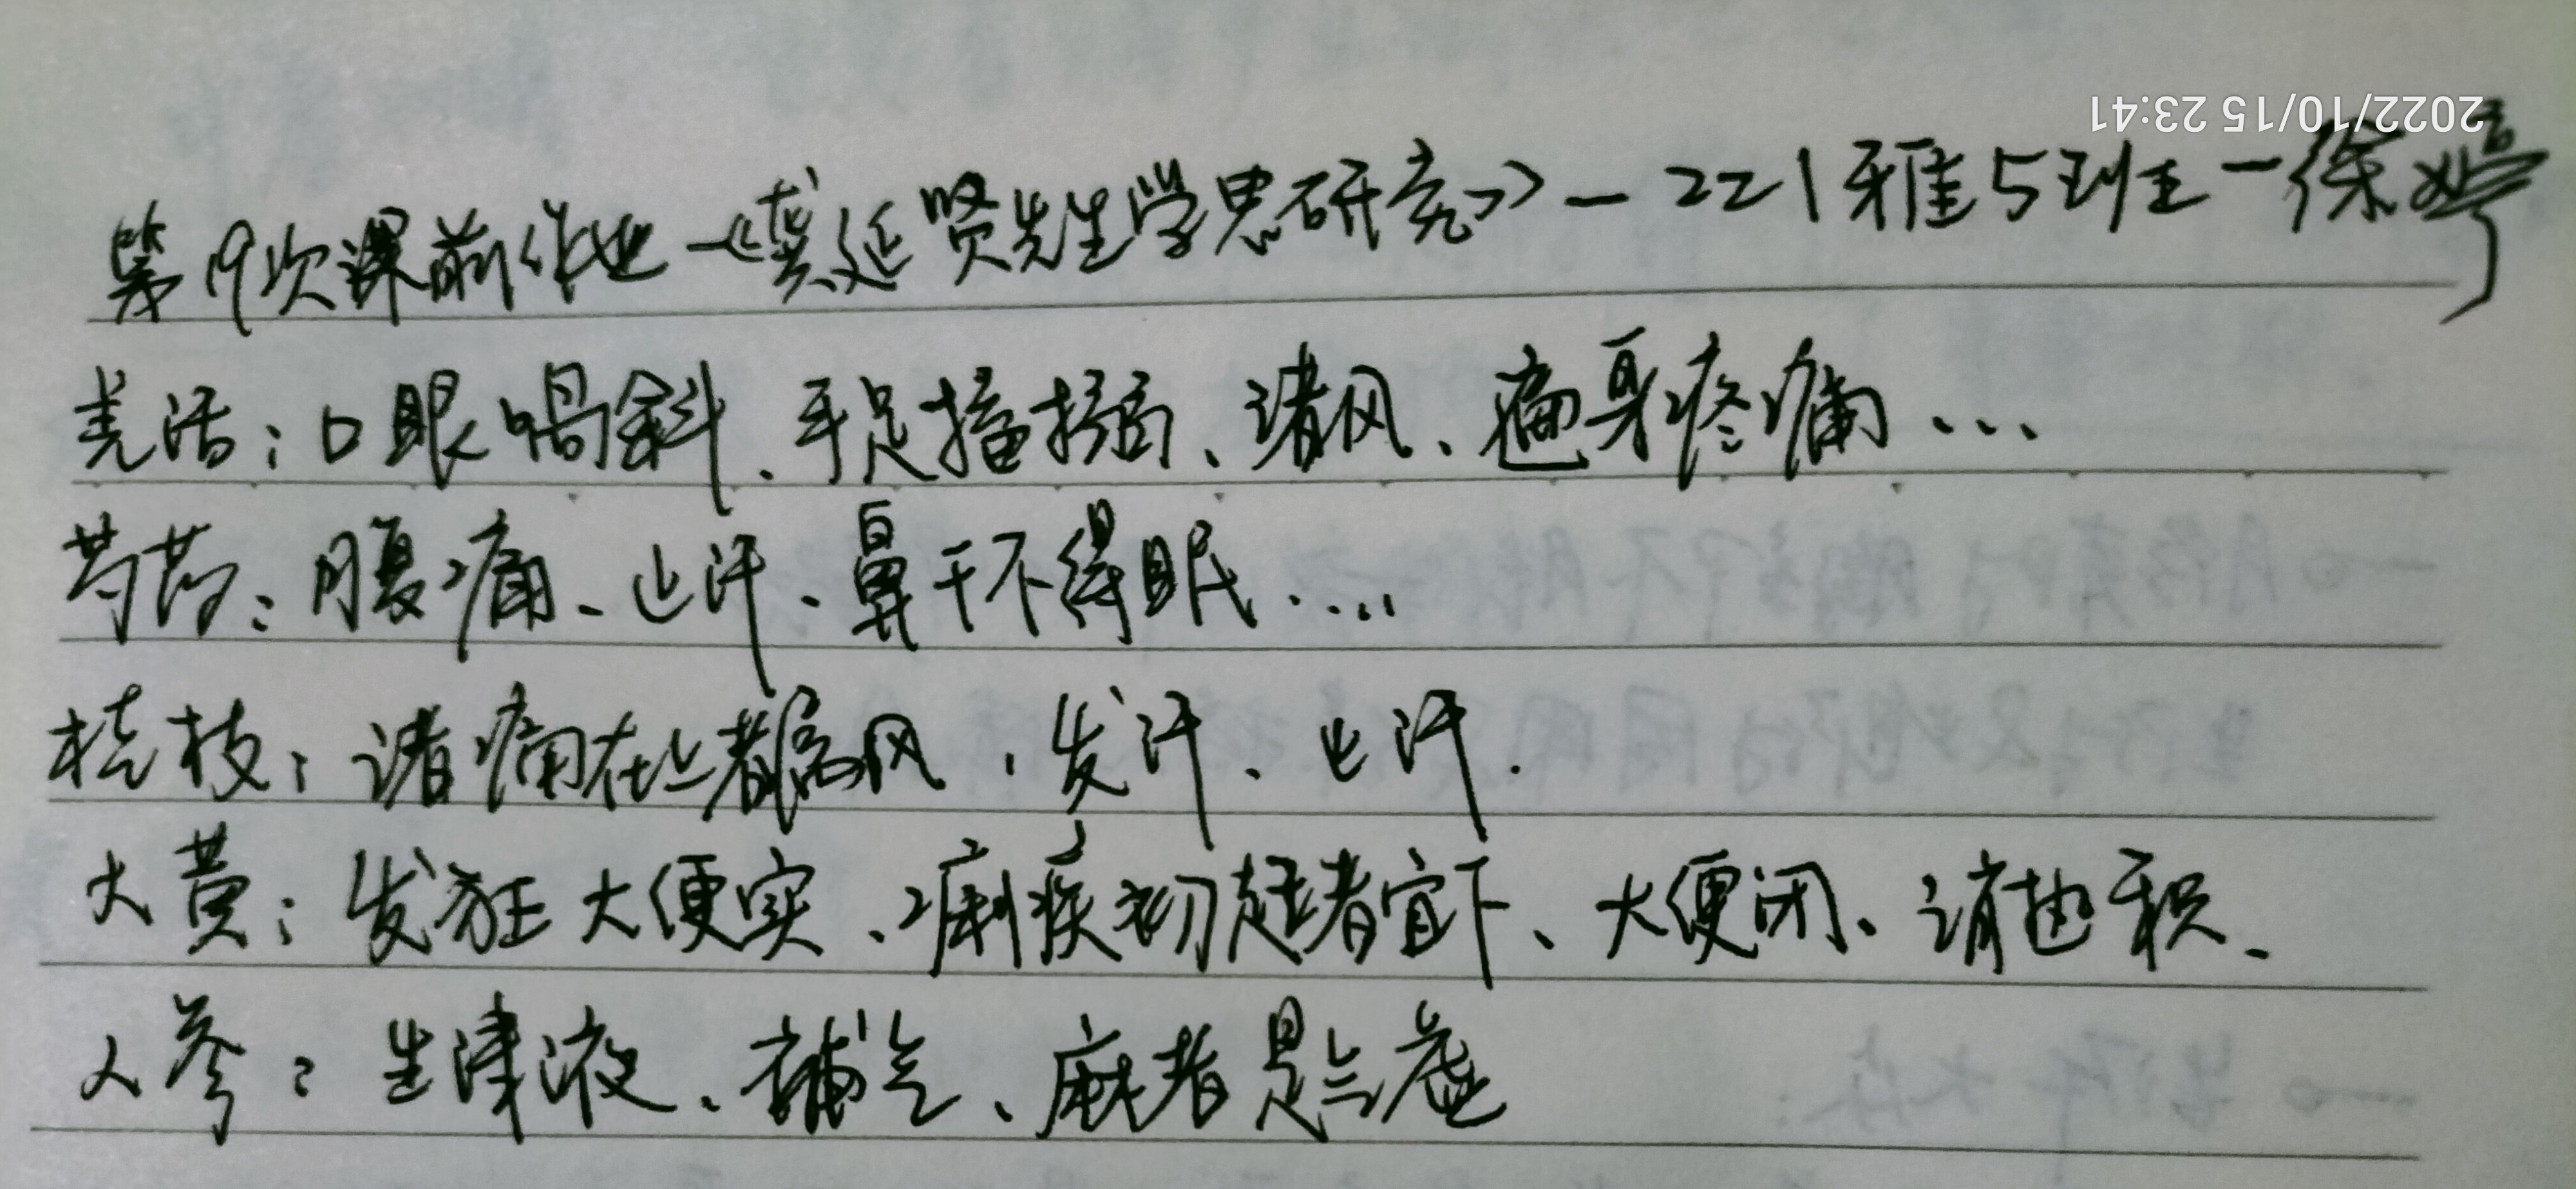 2022/10/15 23:41
第19次课前作业-《龚廷贤先生学思研究》-221雅5班-徐婷
羌活：口眼喎斜、手足搐搦、诸风、遍身疼痛...
芍药：腹痛、止汗、鼻干不得眠....
桂枝：诸痛在上者属风，发汗、止汗.
大黄：发狂大便实、痢疾初起者宜下、大便闭、消血积、
人参：生津液、補气、麻者是气虚